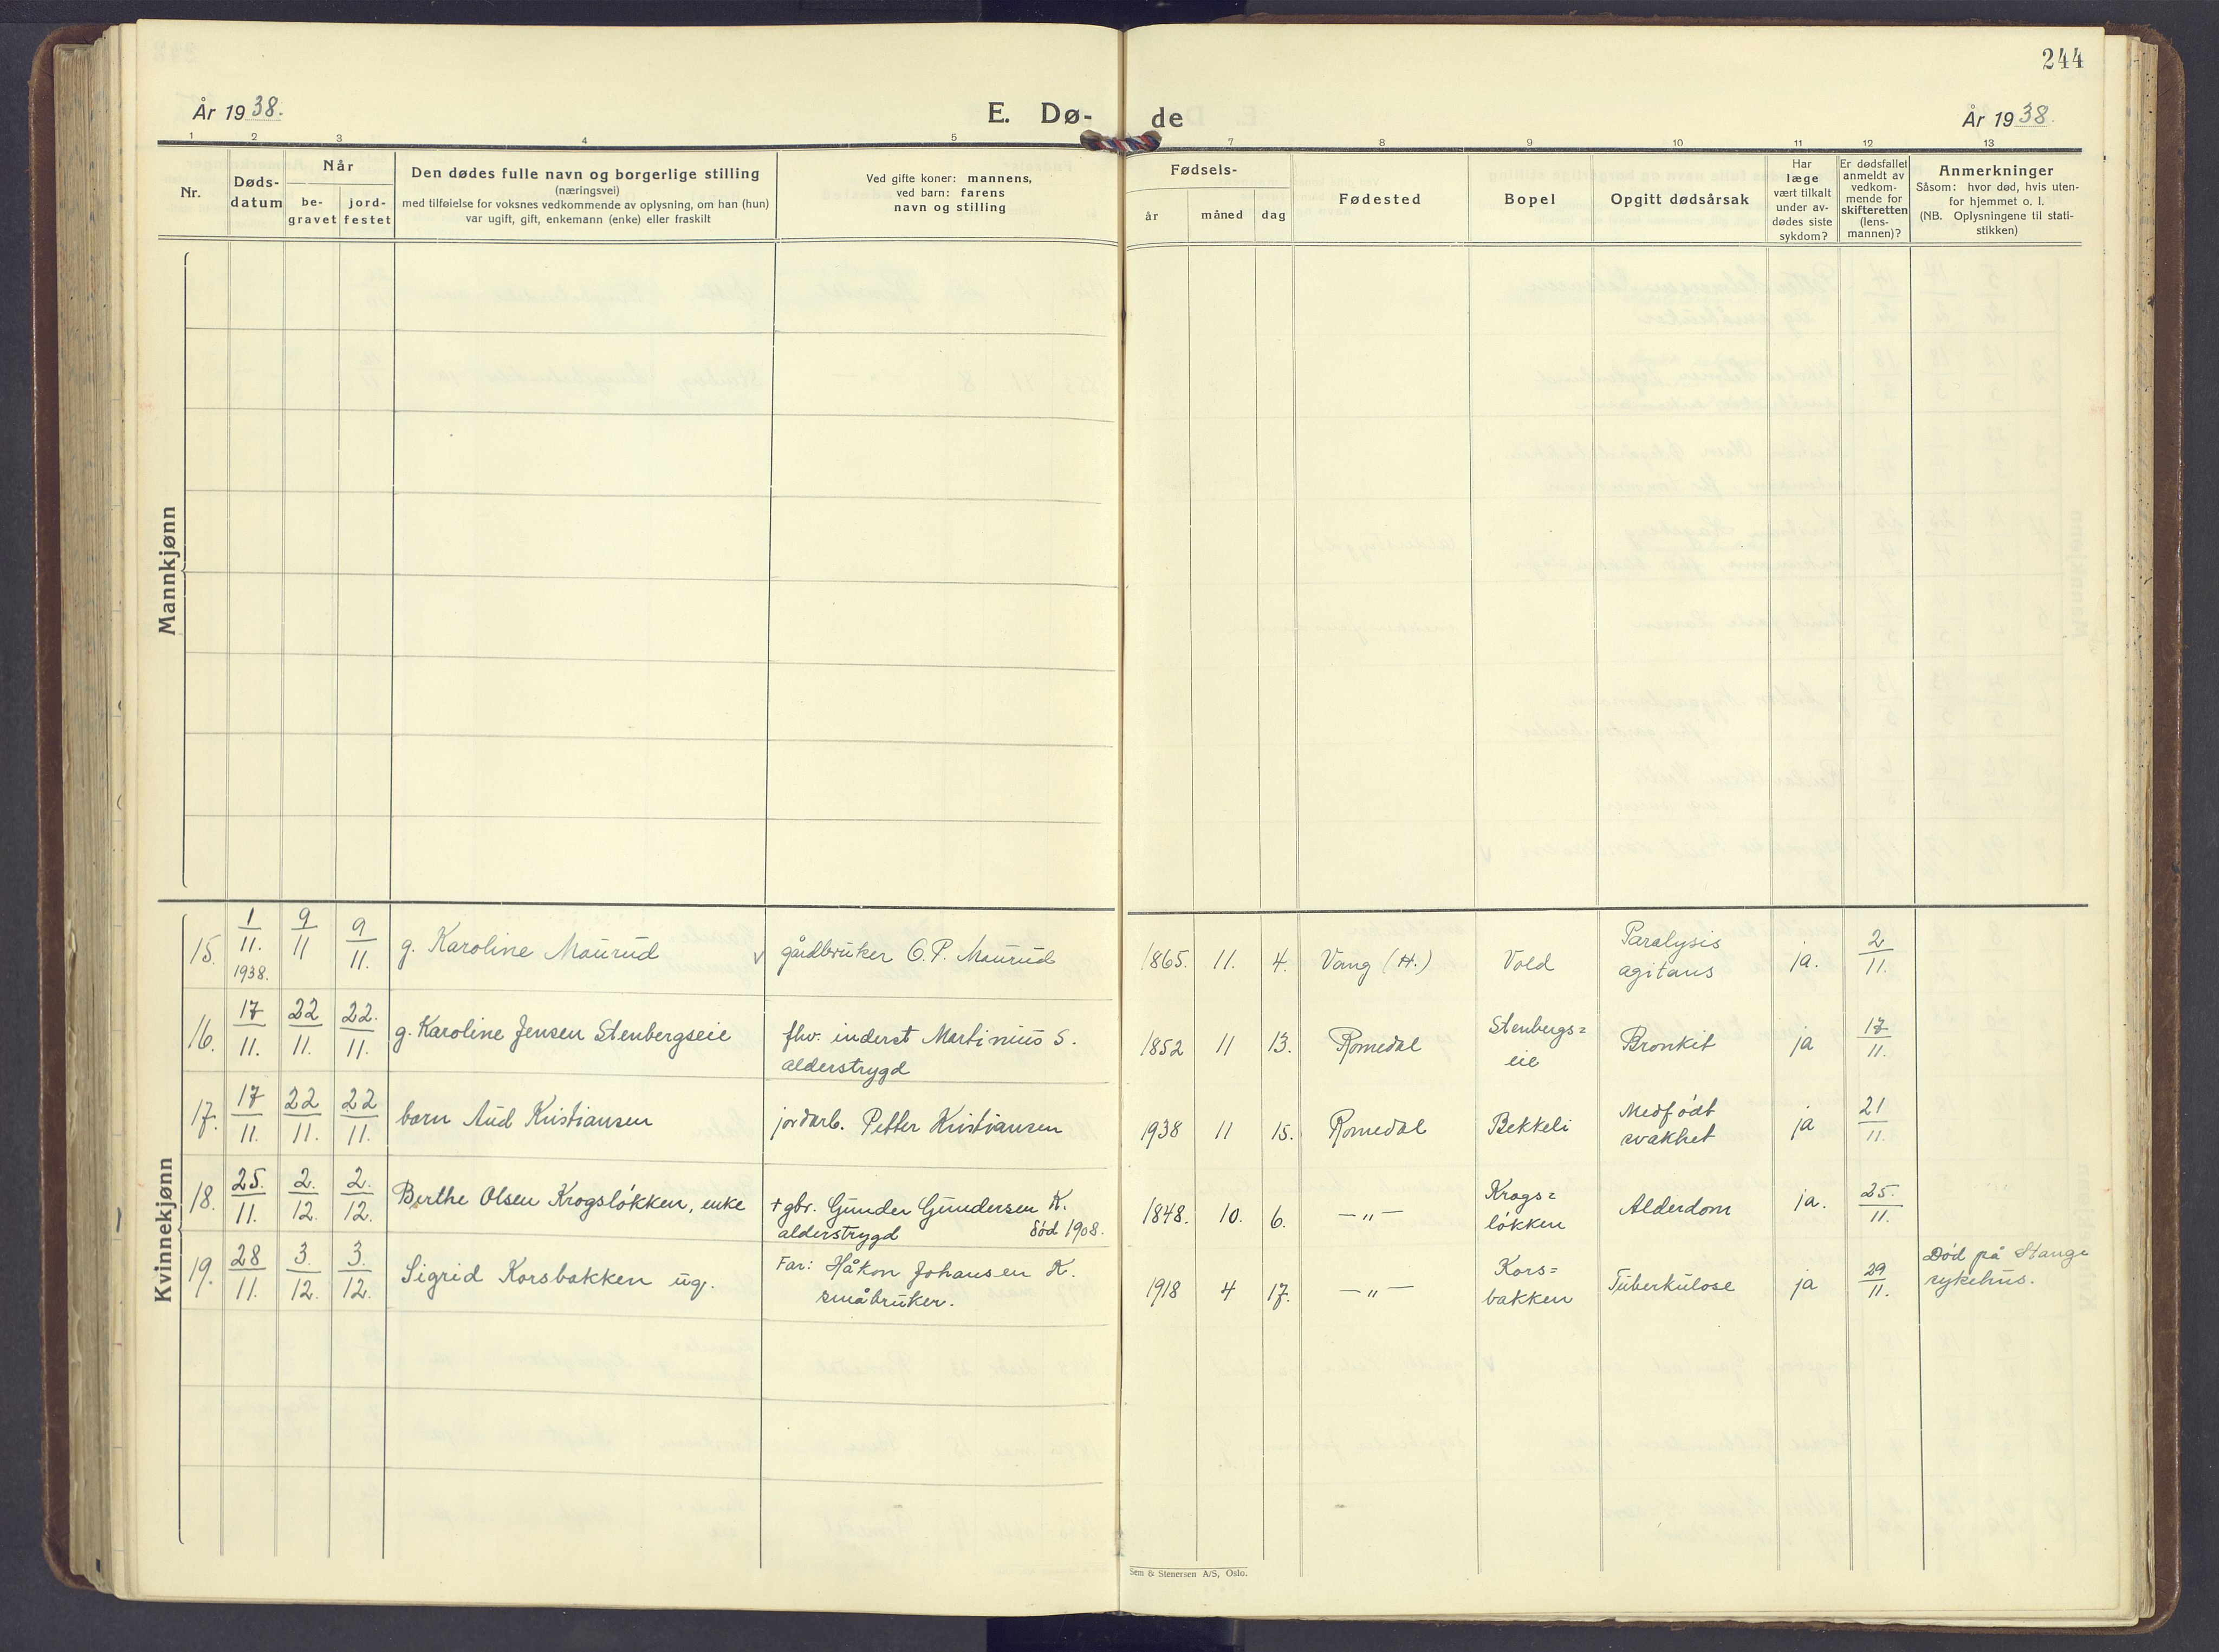 244
År 1938.
E. Dø-
de
År 1938.
1 2 3 4 5 7 8 9 10 11 12 13
Nr.
Døds-
datum
Når
be-
gravet
jord-
festet
Den dødes fulle navn og borgerlige stilling
(næringsvei)
med tilføielse for voksnes vedkommende av oplysning, om han (hun)
var ugift, gift, enkemann (enke) eller fraskilt
Ved gifte koner: mannens,
ved barn: farens
navn og stilling
Fødsels-
år
måned
dag
Fødested
Bopel
Opgitt dødsårsak
Har
læge
vært tilkalt
under av-
dødes siste
sykdom?
Er dødsfallet
anmeldt av
vedkom-
mende for
skifteretten
(lens-
mannen)?
Anmerkninger
Såsom: hvor død, hvis uten-
for hjemmet o. l.
(NB. Oplysningene til stati-
stikken)
Mannkjønn
Kvinnekjønn
15. 1/11. 1938. 9/11 9/11. g. Karoline Maurud v gårdbruker O.P. Maurud 1865. 11. 4. Vang (H.) Vold Paralysis agitans ja. 2/11.
16. 17/11. 22/11. 22./11. g. Karoline Jensen Stenbergseie fhv. inderst Martinius S. alderstrygd 1852 11 13. Romedal Stenbergs= eie Bronkit ja 17/11.
17. 17/11. 22/11. 22/11. barn Aud Kristiansen jordarb. Petter Kristiansen 1938 11 15. Romedal Bekkeli Medfødt svakhet ja 21/11.
18. 25./11. 2./12. 2./12. Berthe Olsen Krogsløkken, enke + gbr. Gunder Gundersen K. alderstrygd død 1908. 1848. 10. 6. —„— Krogs= løkken Alderdom ja. 25./11.
19. 28/11. 3./12. 3./12. Sigrid Korsbakken ug. Far: Håkon Johansen K. småbruker. 1918 4 17. —„— Kors= bakken Tuberkulose ja 29/11. Død på Stange sykehus.
Sem & Stenersen A/S, Oslo.